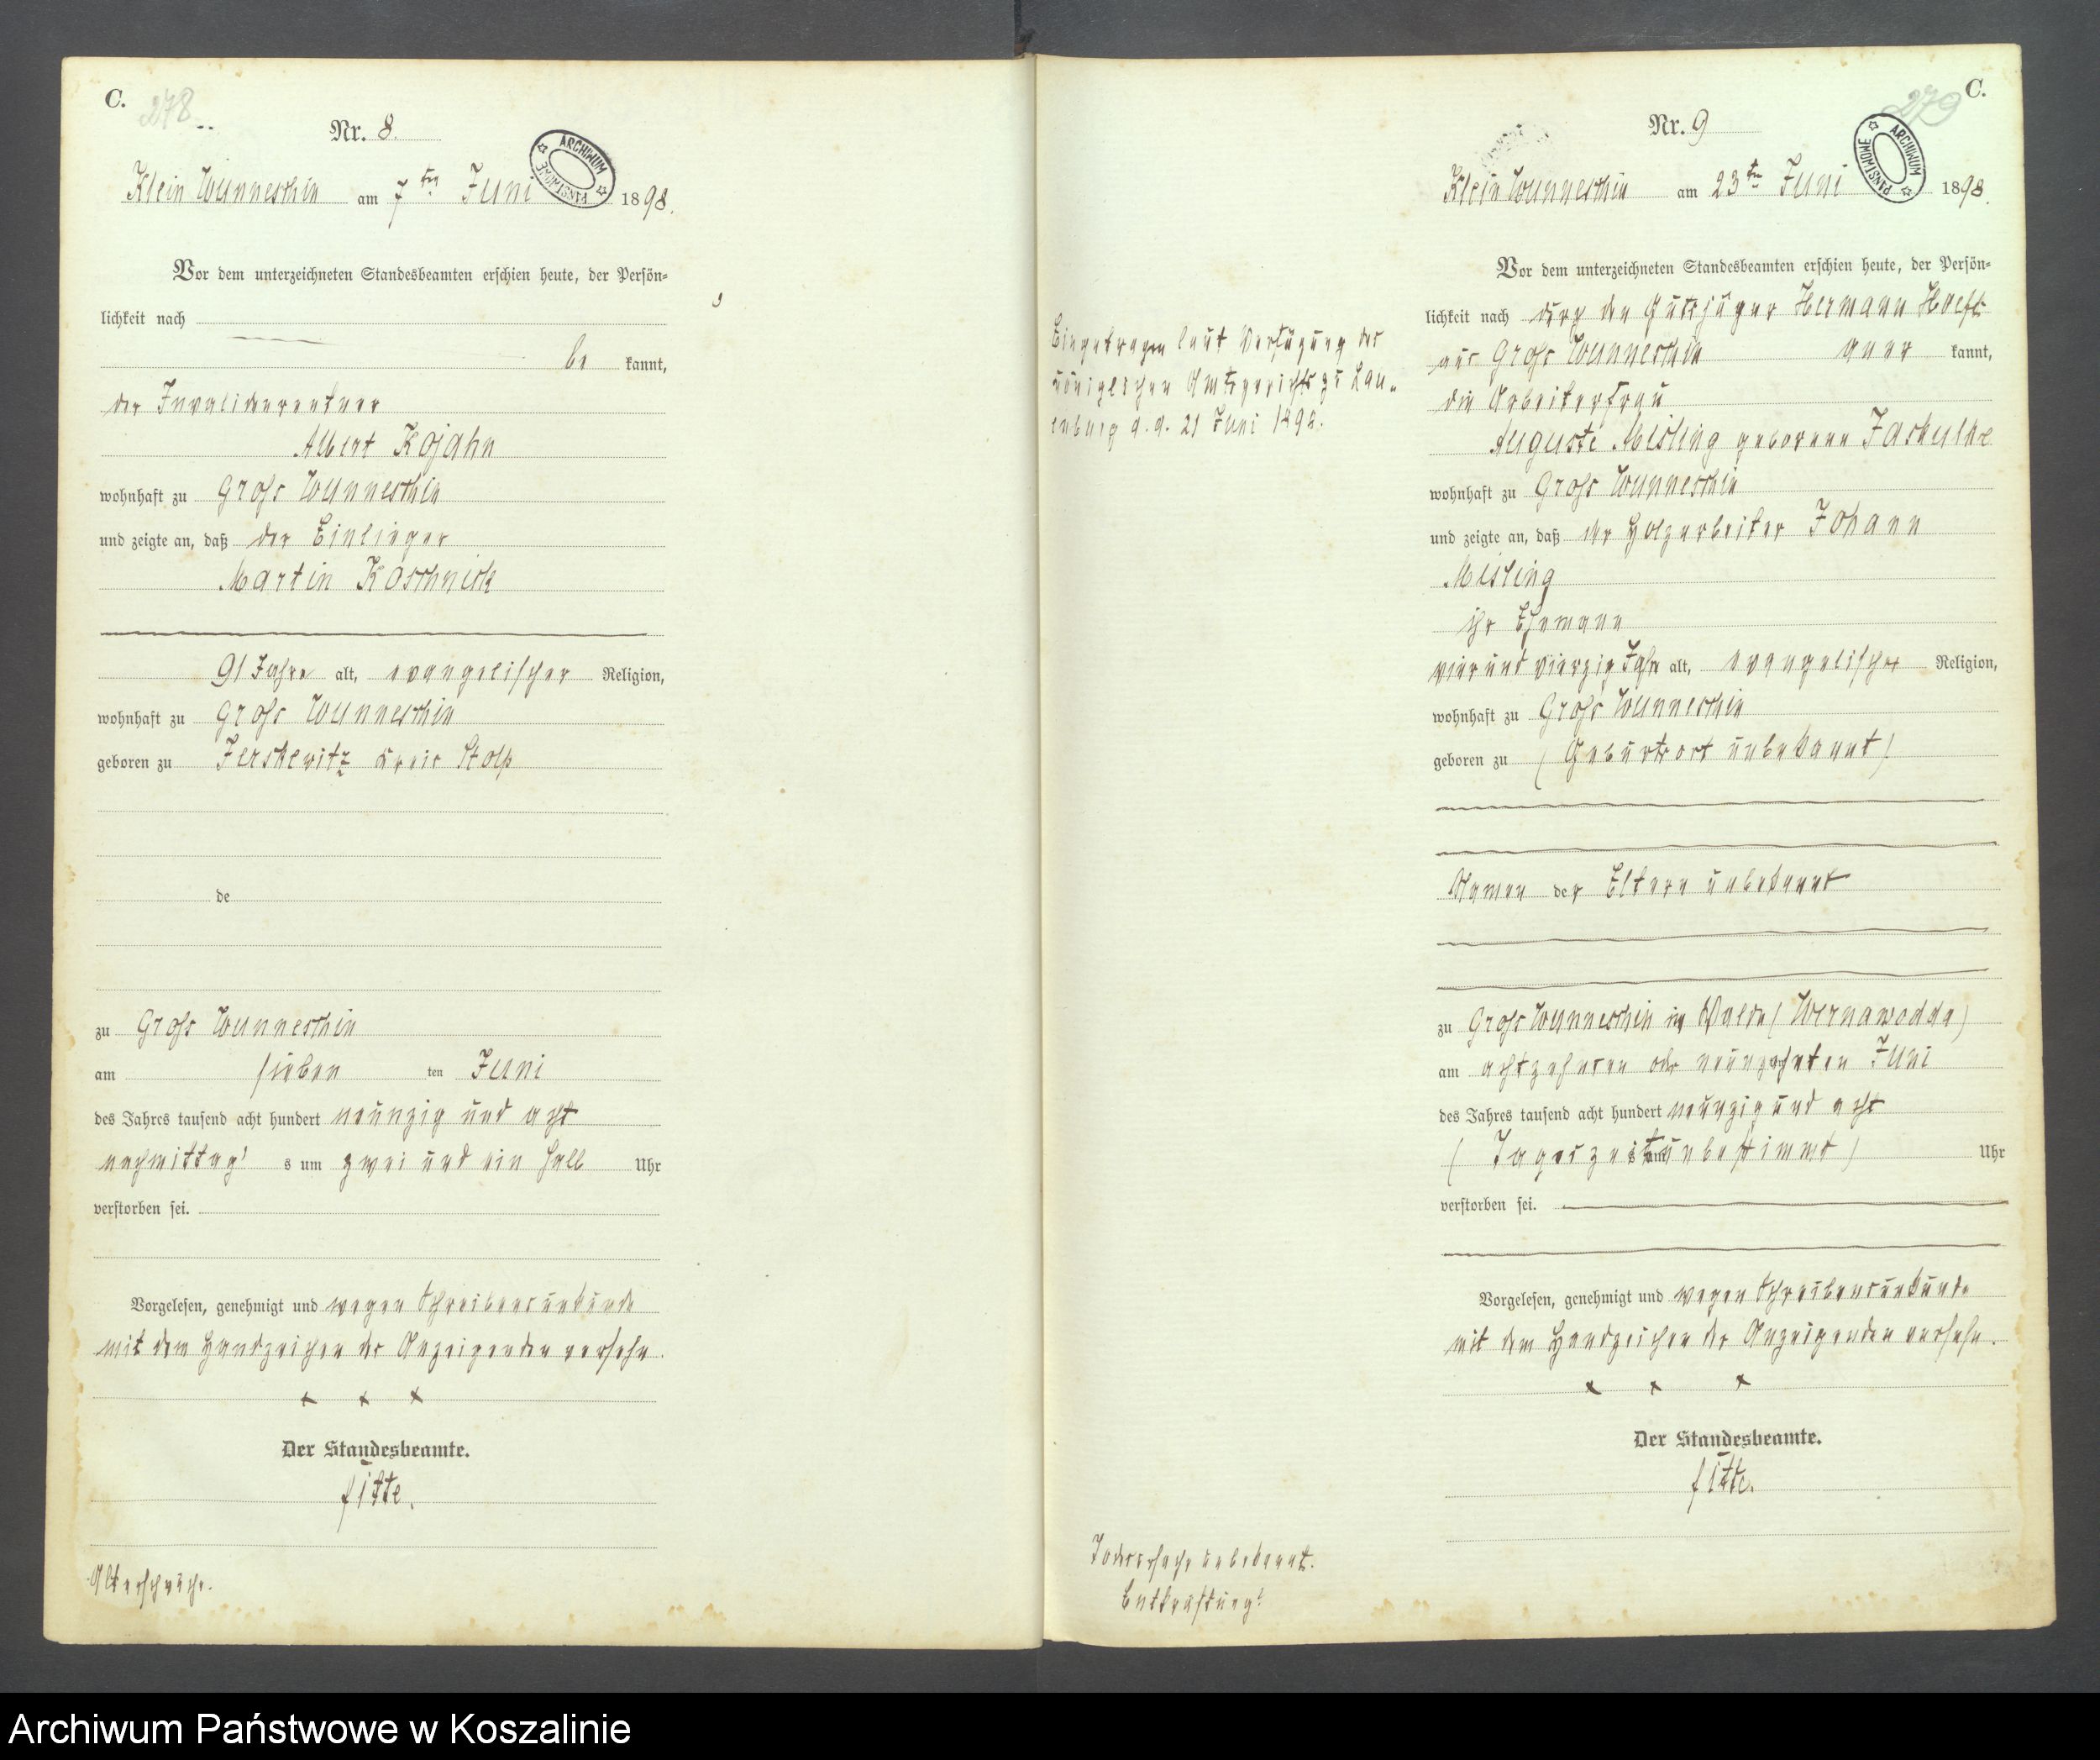 C.
278
Nr. 8.
ARCHIWUM PAŃSTWOWE
Klein Wunneschin am 7ten Juni 1898.
Vor dem unterzeichneten Standesbeamten erschien heute, der Persön-
lichkeit nach
be kannt,
der Invalidenrentner
Albert Kojahn
wohnhaft zu Groß Wunneschin
und zeigte an, daß der Einlieger
Martin Koschnick
91 Jahre alt, evangelischer Religion,
wohnhaft zu Groß Wunneschin
geboren zu Jerskewitz Kreis Stolp
de
zu Groß Wunneschin
am sieben ten Juni
des Jahres tausend acht hundert neunzig und acht
nachmittag s um zwei und ein halb Uhr
verstorben sei.
Vorgelesen, genehmigt und wegen Schreibensunkunde
mit dem Handzeichen des Anzeigenden versehn.
x x x
Der Standesbeamte.
fitte.
Altersschwäche.
C.
279
Nr. 9
ARCHIWUM PAŃSTWOWE
Klein Wunneschin am 23ten Juni 1898.
Eingetragen laut Verfügung des
königlichen Amtsgerichts zu Lau-
enburg d. d. 21 Juni 1898.
Vor dem unterzeichneten Standesbeamten erschien heute, der Persön-
lichkeit nach durch den Gutsjäger Hermann Hoeft
aus Groß Wunneschin aner kannt,
die Arbeiterfrau
Auguste Misling geborene Jaskulke
wohnhaft zu Groß Wunneschin
und zeigte an, daß der Holzarbeiter Johann
Misling
ihr Ehemann
vier und vierzig Jahr alt, evangelischer Religion,
wohnhaft zu Groß Wunneschin
geboren zu (Geburtsort unbekannt)
Namen der Eltern unbekannt
zu Groß Wunneschin im Walde (Wernawodda)
am achtzehnten oder neunzehnten Juni
des Jahres tausend acht hundert neunzig und acht
(Tageszeit s um unbestimmt) Uhr
verstorben sei.
Vorgelesen, genehmigt und wegen Schreibensunkunde
mit dem Handzeichen der Anzeigenden versehn.
x x x
Der Standesbeamte.
fitte.
Todesursache unbekannt.
Entkräftung?
Archiwum Państwowe w Koszalinie